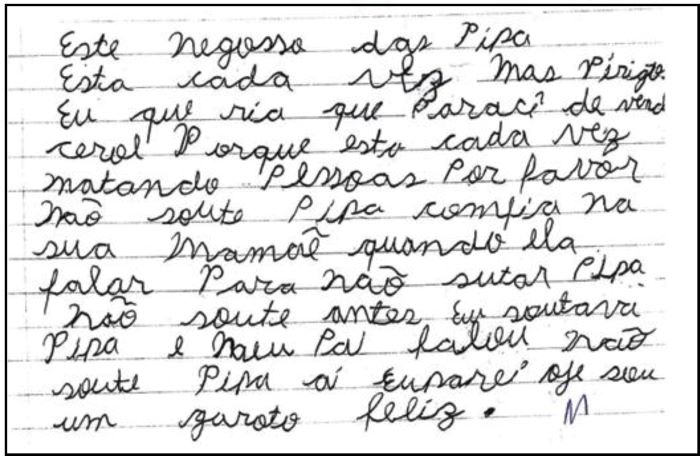 Este negosso das Pipa
Esta cada vez mas Pirigto.
Eu que ria que Paraci de vend
cerol Porque esto cada vez
matando Pessoas Por favor
não soute Pipa comfia na
sua Mamãe quando ela
falar Para não sutar Pipa
não soute antes Eu soutava
Pipa e meu Pai falou não
soute Pipa ai Euparei oje sou
um garoto feliz. M